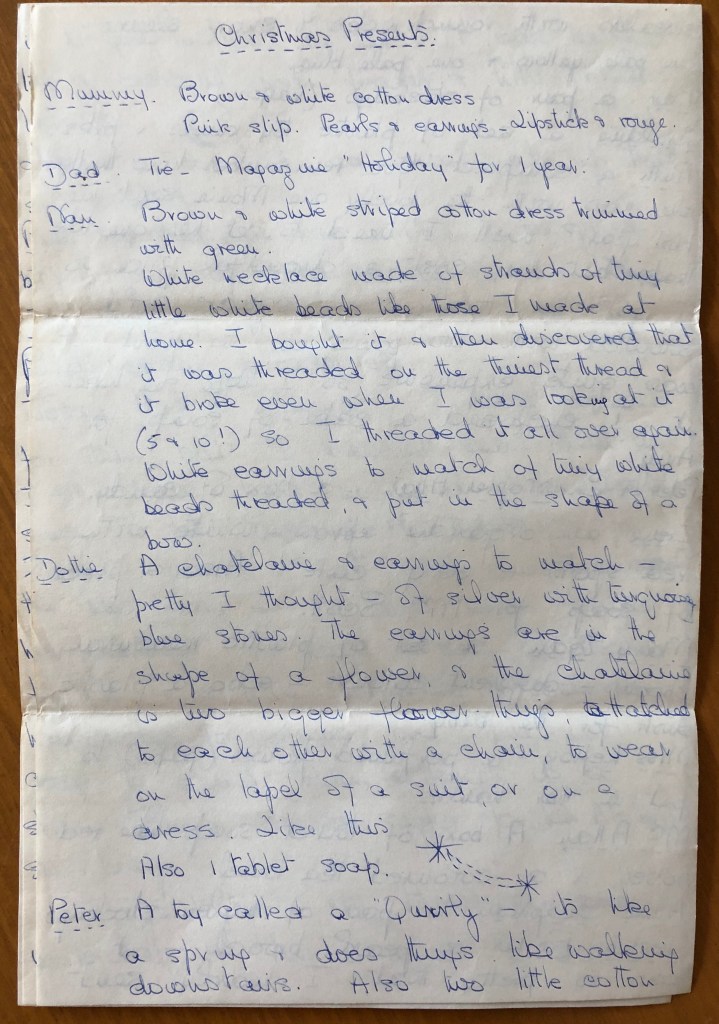 Christmas Presents.
Mummy. Brown & white cotton dress
Pink slip. Pearls & earrings - Lipstick & rouge.
Dad. Tie - Magazine "Holiday" for 1 year.
Nan. Brown & white striped cotton dress trimmed
with green.
White necklace made of strands of tiny
little white beads like those I made at
home. I bought it & then discovered that
it was threaded on the thinest thread &
it broke even when I was looking at it
(5 & 10!) so I threaded it all over again.
White earrings to match of tiny white
beads threaded, & put in the shape of a
bow.
Dottie A chatelaine & earrings to match -
pretty I thought - of silver with turquoise
blue stones. The earrings are in the
shape of a flower, & the chatelaine
is two bigger flower things, attatched
to each other with a chain, to wear
on the lapel of a suit, or on a
dress. Like this
Also 1 tablet soap.
Peter A toy called a "Quirity" - its like
a spring & does things like walking
downstairs. Also two little cotton